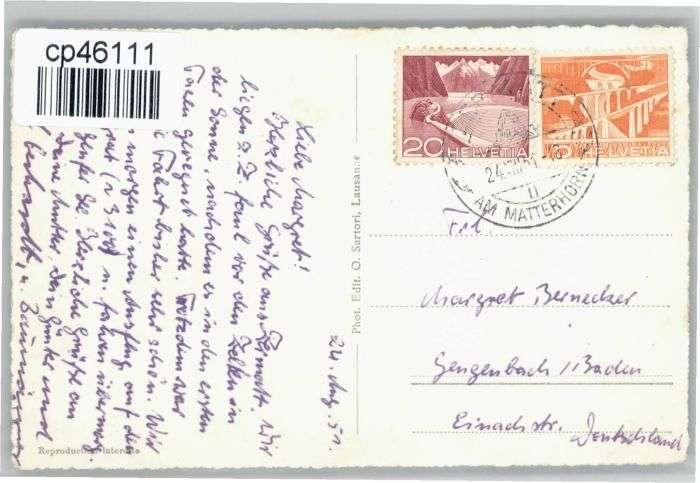 cp46111
24. Aug. 51.
Liebe Margret!
Herzliche Grüße aus Zermatt. Wir
liegen z. Z. faul vor den Zelten in
der Sonne, nachdem es in den ersten
Tagen geregnet hatte. Trotzdem war
Fahrt bisher sehr schön. Wir
morgen einen Ausflug auf den
u. fahren
Herzliche Grüße an
Deine Mutter, Dein Günter und
Reproduction interdite
Phot. Edit. O. Sartori, Lausanne
20 HELVETIA
5 HELVETIA
24. VIII 51
AM MATTERHORN
Frl.
Margret Bernecker
Gengenbach / Baden
Einachstr.
Deutschland